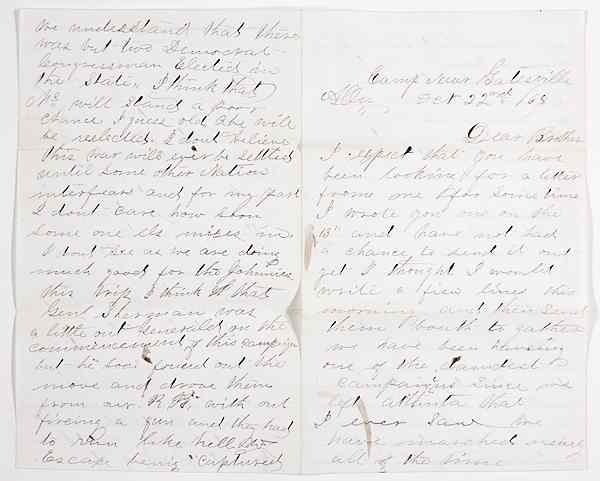 Camp Near Gatesville
Ala, Oct 22nd /65
Dear Brother
I expect that you have
been looking for a letter
frome me for some time
I wrote you one on the
13" and have not had
a chance to send it out
yet I thought I would
write a few lines this
morning and then Send
them both to gather
we have been haveing
one of the damdest
campaigns since we
left atlanta that
I ever Saw we
have marched nearly
all of the time
We understand that there
was but two Democrat
Congressman Elected in
the State, I think that
Mc will stand a poor
chance I guess old Abe will
be reelected. I dont believe
this war will ever be settled
until some other Nation
interfears and for my part
I dont care how soon
some one els mixes in
I dont See as we are doing
much good for the Johnnies
this trip I think that
Genl Sherman was
a little out generald in the
commencement of this campaign
but he soon found out the
move and drove them
from our R R, with out
fireing a gun and they had
to run like hell to
Escape being captured